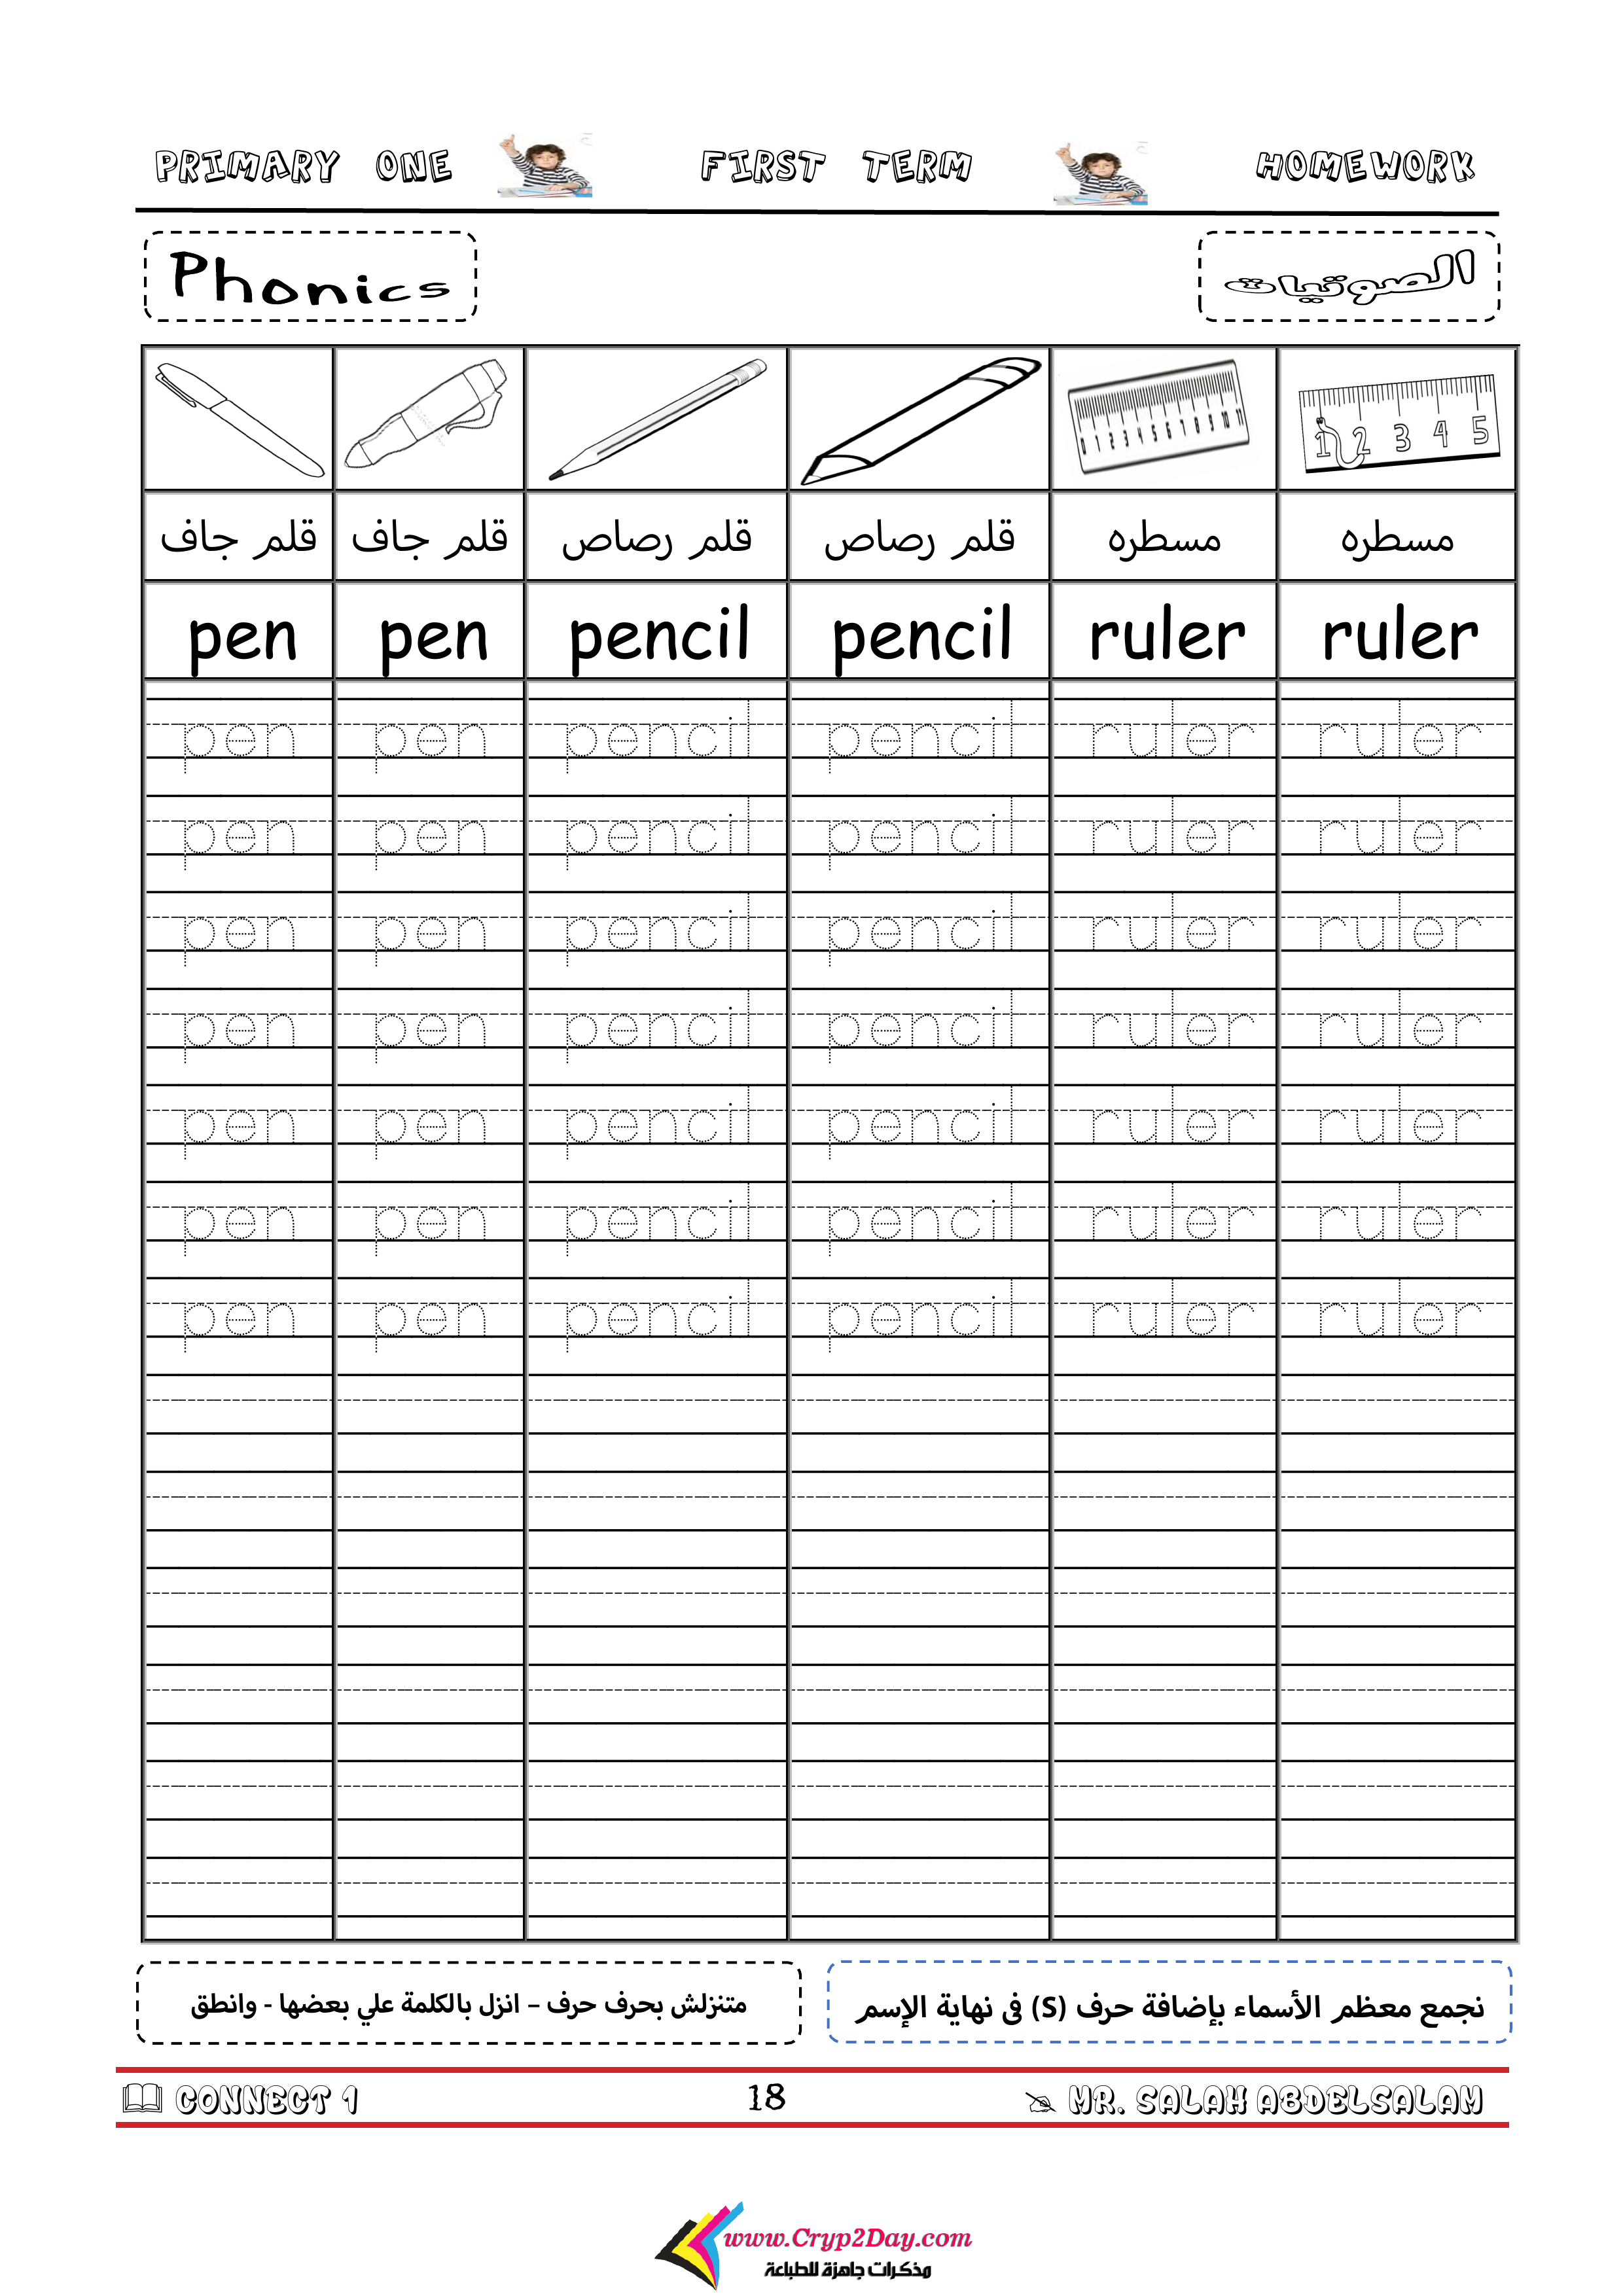 PRIMARY ONE FIRST TERM HOMEWORK
Phonics الصوتيات
0 1 2 3 4 5 6 7 8 9 10 11 1 2 3 4 5
قلم جاف قلم جاف قلم رصاص قلم رصاص مسطره مسطره
pen pen pencil pencil ruler ruler
pen pen pencil pencil ruler ruler
pen pen pencil pencil ruler ruler
pen pen pencil pencil ruler ruler
pen pen pencil pencil ruler ruler
pen pen pencil pencil ruler ruler
pen pen pencil pencil ruler ruler
pen pen pencil pencil ruler ruler
نجمع معظم الأسماء بإضافة حرف (S) فى نهاية الإسم
متنزلش بحرف حرف – انزل بالكلمة علي بعضها - وانطق
CONNECT 1 18 MR. SALAH ABDELSALAM
www.Cryp2Day.com
مذكرات جاهزة للطباعة